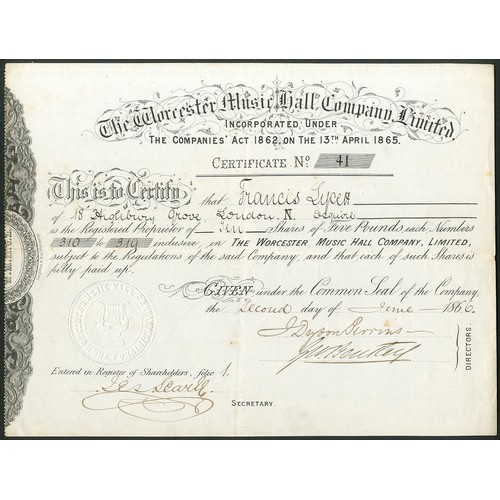 The Worcester Music Hall Company, Limited
INCORPORATED UNDER
THE COMPANIES' ACT 1862, ON THE 13TH APRIL 1865.
CERTIFICATE No 41
This is to Certify that Francis Lycett
of 18 Highbury Grove London. N. Esquire
is the Registered Proprietor of Ten Shares of Five Pounds each, Numbers
310 to 319 inclusive, in THE WORCESTER MUSIC HALL COMPANY, LIMITED,
subject to the Regulations of the said Company, and that each of such Shares is
fully paid up.
GIVEN under the Common Seal of the Company,
the Second day of June 1866
J Dyson Perrins
DIRECTORS.
Entered in Register of Shareholders, folio 1.
Jas Searle
SECRETARY.